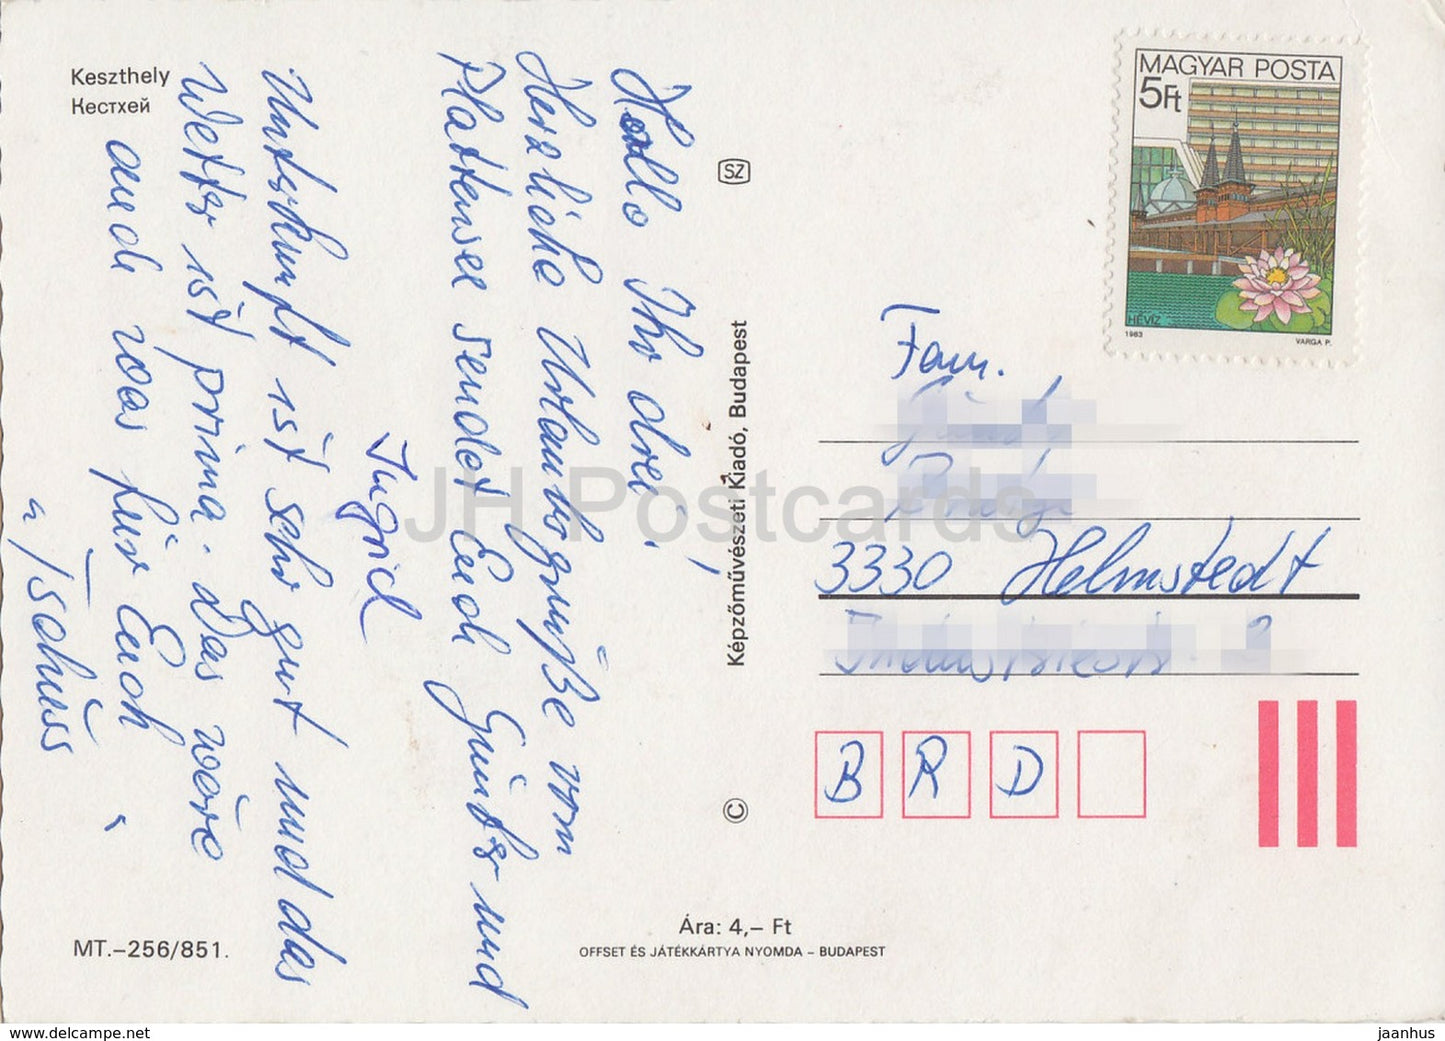 Keszthely
Кестхей
Hallo Ihr drei!
Herzliche Urlaubsgrüße vom
Plattensee sendet Euch Günter und
Ingrid
Unterkunft ist sehr gut und das
Wetter ist prima. Das wäre
auch was für Euch
Tschüss
MT.–256/851.
SZ
Képzőművészeti Kiadó, Budapest
©
Ára: 4,– Ft
OFFSET ÉS JÁTÉKKÁRTYA NYOMDA – BUDAPEST
MAGYAR POSTA
5Ft
HÉVÍZ
1983
VARGA P.
Fam.
3330 Helmstedt
2
B R D
JH Postcards
www.delcampe.net
jaanhus